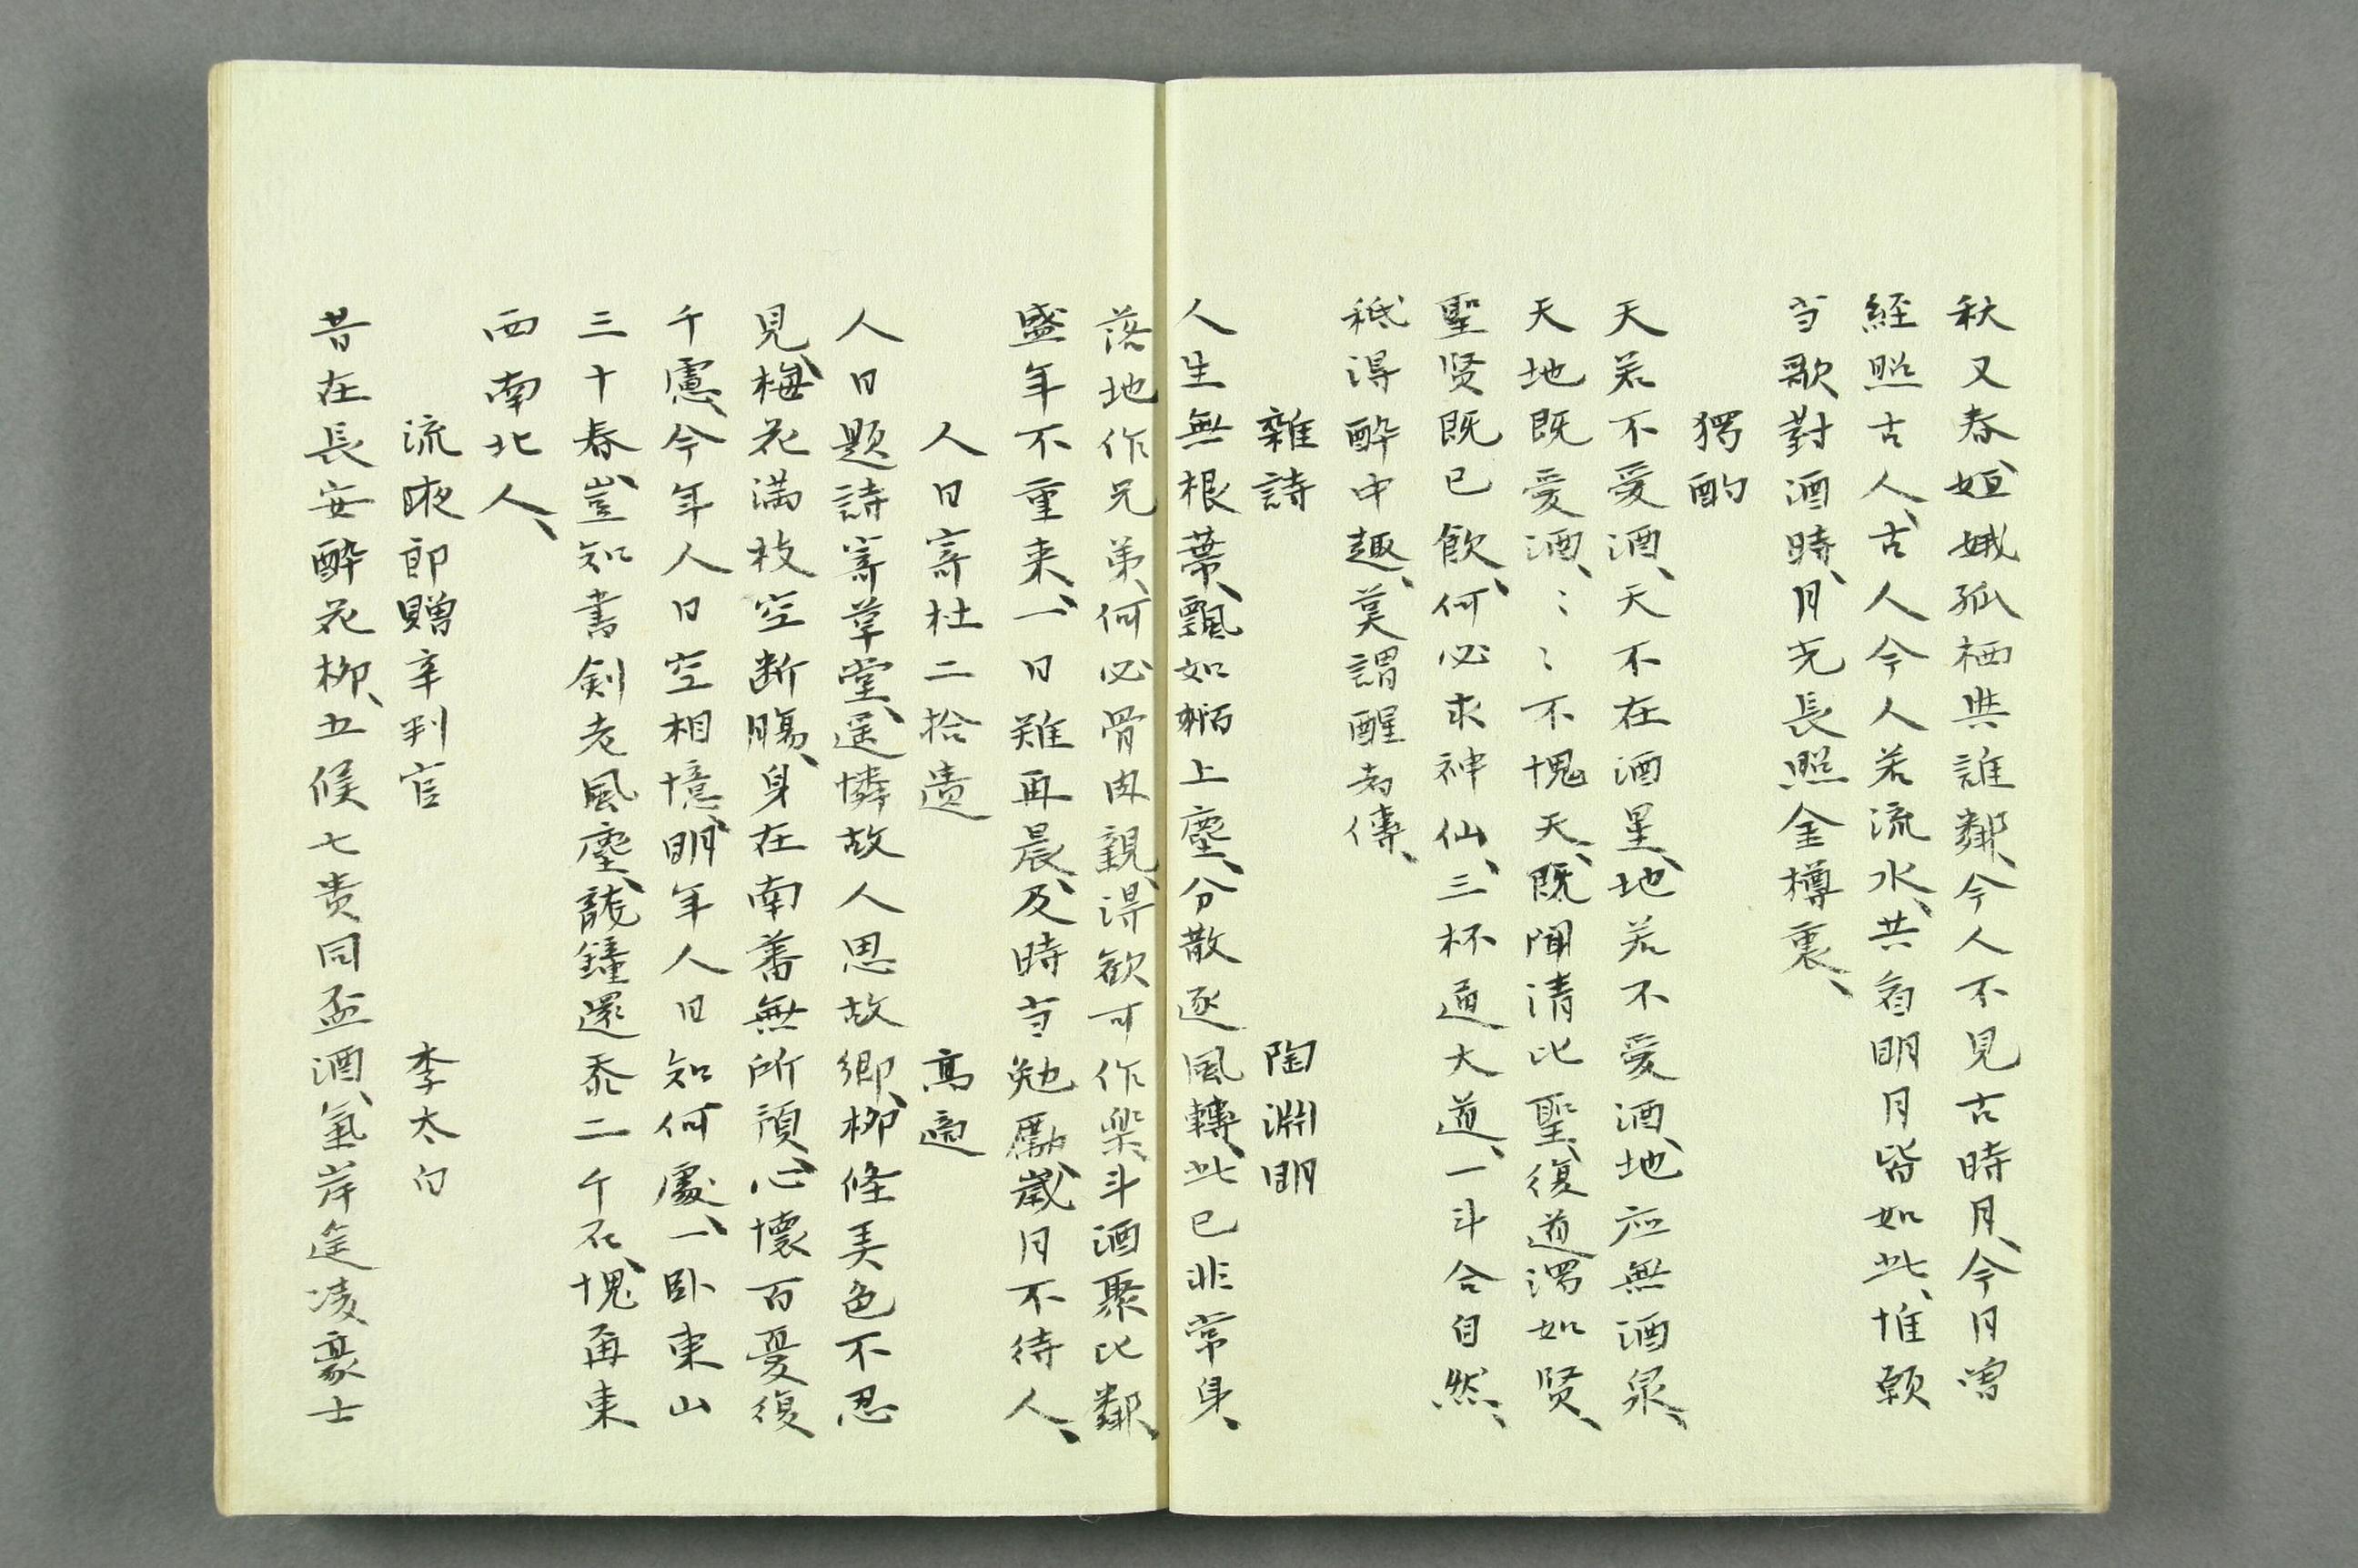 秋又春、姮娥孤栖與誰鄰、今人不見古時月、今月曽
経照古人、古人今人若流水、共看明月皆如此、惟願
当歌對酒時、月光長照金樽裏、
獨酌
天若不愛酒、天不在酒星、地若不愛酒、地應無酒泉、
天地既愛酒、〻〻不愧天、既聞清比聖、復道濁如賢、
聖賢既已飲、何必求神仙、三杯通大道、一斗合自然、
秪得酔中趣、莫謂醒者傳、
雜詩 陶淵明
人生無根蔕、飄如陌上塵、分散逐風轉、此已非常身、
落地作兄弟、何必骨肉親、得歓可作楽、斗酒聚比鄰、
盛年不重来、一日難再晨、及時当勉勵、歲月不待人、
人日寄杜二拾遺 高適
人日題詩寄草堂、遥憐故人思故郷、柳條美色不忍
見、梅花満枝空断腸、身在南蕃無所預、心懐百憂復
千慮、今年人日空相憶、明年人日知何處、一臥東山
三十春、豈知書剣老風塵、龍鐘還忝二千石、愧爾東
西南北人、
流夜郎贈辛判官 李太白
昔在長安酔花柳、五侯七貴同盃酒、氣岸遙凌豪士